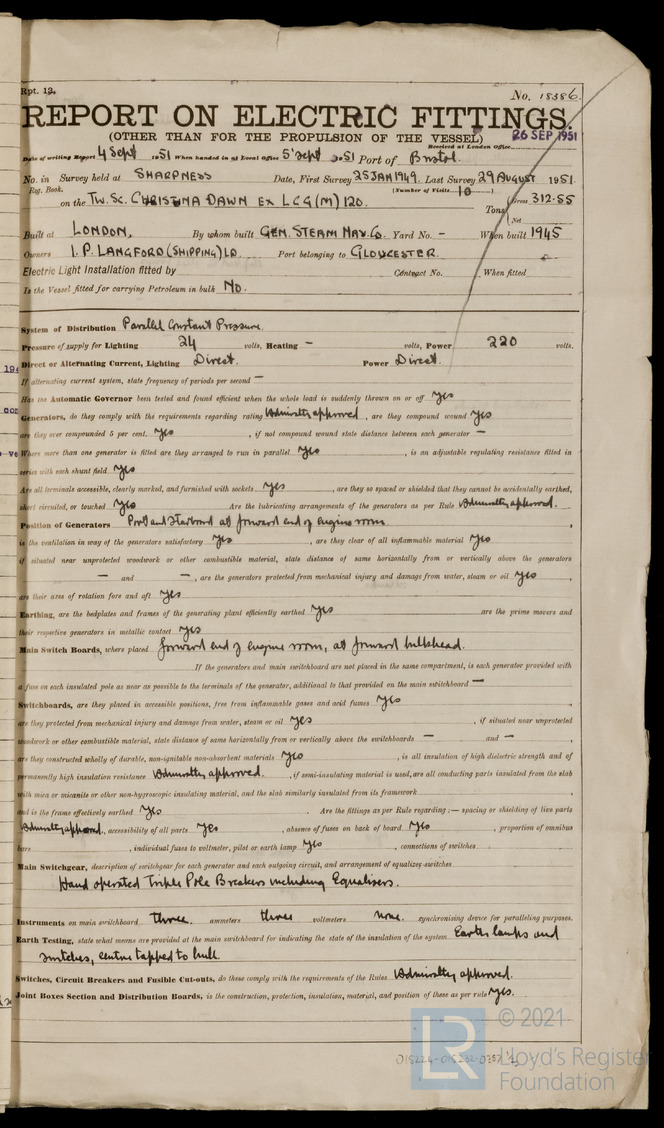 Rpt. 13.
No. 18386.
REPORT ON ELECTRIC FITTINGS.
(OTHER THAN FOR THE PROPULSION OF THE VESSEL)
26 SEP 1951
Received at London Office
Date of writing Report 4 Sept 1951 When handed in at Local Office 5 Sept 1951 Port of Bristol.
No. in Survey held at SHARPNESS Date, First Survey 25 JAN 1949. Last Survey 29 AUGUST 1951.
Reg. Book. (Number of Visits 10)
on the Tw. Sc. CHRISTINA DAWN EX LCG(M) 120. Tons Gross 312.55
Net
Built at LONDON, By whom built GEN. STEAM NAV. Co. Yard No. - When built 1945
Owners I. P. LANGFORD (SHIPPING) LD. Port belonging to GLOUCESTER.
Electric Light Installation fitted by Contract No. When fitted
Is the Vessel fitted for carrying Petroleum in bulk No.
System of Distribution Parallel Constant Pressure.
Pressure of supply for Lighting 24 volts, Heating - volts, Power 220 volts.
Direct or Alternating Current, Lighting Direct. Power Direct.
If alternating current system, state frequency of periods per second —
Has the Automatic Governor been tested and found efficient when the whole load is suddenly thrown on or off Yes
Generators, do they comply with the requirements regarding rating Admiralty approved, are they compound wound Yes
are they over compounded 5 per cent. Yes, if not compound wound state distance between each generator —
Where more than one generator is fitted are they arranged to run in parallel Yes, is an adjustable regulating resistance fitted in
series with each shunt field Yes
Are all terminals accessible, clearly marked, and furnished with sockets Yes, are they so spaced or shielded that they cannot be accidentally earthed,
short circuited, or touched Yes Are the lubricating arrangements of the generators as per Rule Admiralty approved.
Position of Generators Port and Starboard at forward end of engine room.,
is the ventilation in way of the generators satisfactory Yes, are they clear of all inflammable material Yes
if situated near unprotected woodwork or other combustible material, state distance of same horizontally from or vertically above the generators
— and —, are the generators protected from mechanical injury and damage from water, steam or oil Yes,
are their axes of rotation fore and aft Yes
Earthing, are the bedplates and frames of the generating plant efficiently earthed Yes are the prime movers and
their respective generators in metallic contact Yes
Main Switch Boards, where placed forward end of engine room, at forward bulkhead.
If the generators and main switchboard are not placed in the same compartment, is each generator provided with
a fuse on each insulated pole as near as possible to the terminals of the generator, additional to that provided on the main switchboard —
Switchboards, are they placed in accessible positions, free from inflammable gases and acid fumes Yes,
are they protected from mechanical injury and damage from water, steam or oil Yes, if situated near unprotected
woodwork or other combustible material, state distance of same horizontally from or vertically above the switchboards — and —,
are they constructed wholly of durable, non-ignitable non-absorbent materials Yes, is all insulation of high dielectric strength and of
permanently high insulation resistance Admiralty approved., if semi-insulating material is used, are all conducting parts insulated from the slab
with mica or micanite or other non-hygroscopic insulating material, and the slab similarly insulated from its framework,
and is the frame effectively earthed Yes. Are the fittings as per Rule regarding:— spacing or shielding of live parts
Admiralty approved., accessibility of all parts Yes, absence of fuses on back of board Yes, proportion of omnibus
bars, individual fuses to voltmeter, pilot or earth lamp Yes, connections of switches
Main Switchgear, description of switchgear for each generator and each outgoing circuit, and arrangement of equalizer switches
Hand operated Triple Pole Breakers including Equalisers.
Instruments on main switchboard three. ammeters three voltmeters none. synchronising device for paralleling purposes.
Earth Testing, state what means are provided at the main switchboard for indicating the state of the insulation of the system Earth lamps and
switches, centre tapped to hull.
Switches, Circuit Breakers and Fusible Cut-outs, do these comply with the requirements of the Rules Admiralty approved.
Joint Boxes Section and Distribution Boards, is the construction, protection, insulation, material, and position of these as per rule Yes.
© 2021
LR
Lloyd's Register
Foundation